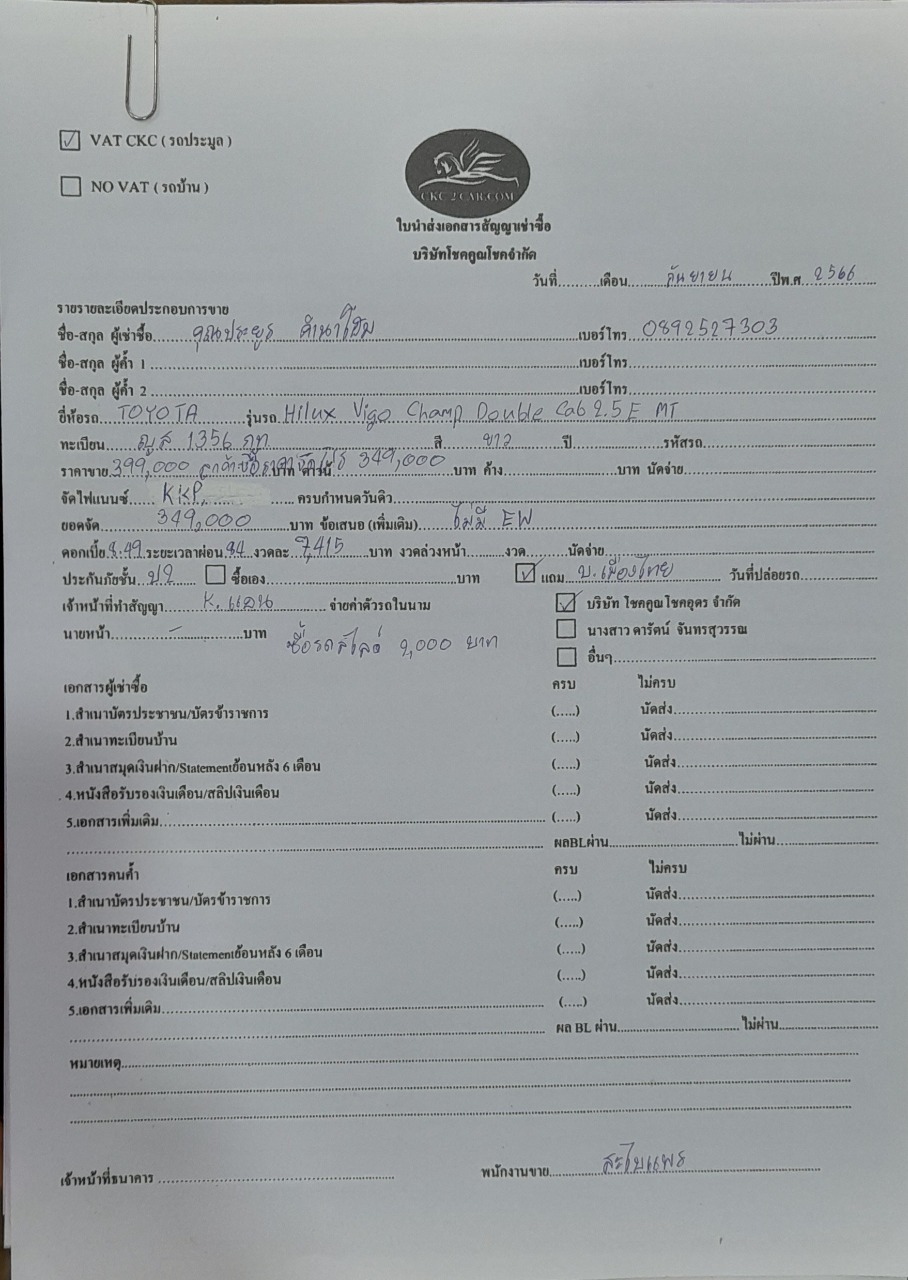 VAT CKC ( รถประมูล )
NO VAT ( รถบ้าน )
CKC 2 CAR.COM
ใบนำส่งเอกสารสัญญาเช่าซื้อ
บริษัทโชคคูณโชคจำกัด
วันที่..........เดือน......กันยายน......ปีพ.ศ. 2566
รายรายละเอียดประกอบการขาย
ชื่อ-สกุล ผู้เช่าซื้อ......คุณประยูร ......เบอร์โทร 0892527303
ชื่อ-สกุล ผู้ค้ำ 1 ......เบอร์โทร......
ชื่อ-สกุล ผู้ค้ำ 2 ......เบอร์โทร......
ยี่ห้อรถ...TOYOTA......รุ่นรถ.Hilux Vigo Champ Double Cab 2.5 E MT
ทะเบียน......1356 ภูท......สี......ขาว......ปี......รหัสรถ......
ราคาขาย 399,000 349,000 บาท ค้าง......บาท นัดจ่าย......
จัดไฟแนนซ์...... KKP......ครบกำหนดวันคิว......
ยอดจัด......349,000......บาท ข้อเสนอ (เพิ่มเติม)......ไม่มี EW
ดอกเบี้ย 8.49 ระยะเวลาผ่อน 84 งวดละ 7,415 บาท งวดล่วงหน้า.........งวด.........นัดจ่าย......
ประกันภัยชั้น...ป2...... ซื้อเอง......บาท แถม...บ.เมืองไทย...... วันที่ปล่อยรถ......
เจ้าหน้าที่ทำสัญญา......K.แอน......จ่ายค่าตัวรถในนาม บริษัท โชคคูณโชคอุดร จำกัด
นายหน้า......-......บาท นางสาว ดารัตน์ จันทรสุวรรณ
ซื้อรถสไลด์ 2,000 บาท
อื่นๆ......
เอกสารผู้เช่าซื้อ ครบ ไม่ครบ
1.สำเนาบัตรประชาชน/บัตรข้าราชการ (.....) นัดส่ง......
2.สำเนาทะเบียนบ้าน (.....) นัดส่ง......
3.สำเนาสมุดเงินฝาก/Statementย้อนหลัง 6 เดือน (.....) นัดส่ง......
4.หนังสือรับรองเงินเดือน/สลิปเงินเดือน (.....) นัดส่ง......
5.เอกสารเพิ่มเติม...... (.....) นัดส่ง......
...... ผลBLผ่าน......ไม่ผ่าน......
เอกสารคนค้ำ ครบ ไม่ครบ
1.สำเนาบัตรประชาชน/บัตรข้าราชการ (.....) นัดส่ง......
2.สำเนาทะเบียนบ้าน (.....) นัดส่ง......
3.สำเนาสมุดเงินฝาก/Statementย้อนหลัง 6 เดือน (.....) นัดส่ง......
4.หนังสือรับรองเงินเดือน/สลิปเงินเดือน (.....) นัดส่ง......
5.เอกสารเพิ่มเติม...... (.....) นัดส่ง......
...... ผล BL ผ่าน......ไม่ผ่าน......
หมายเหตุ......
เจ้าหน้าที่ธนาคาร ...... พนักงานขาย......สะไบแพร